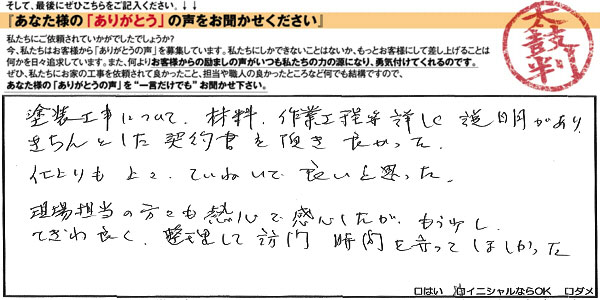 そして、最後にぜひこちらをご記入ください。↓↓
『あなた様の「ありがとう」の声をお聞かせください』
私たちにご依頼されていかがでしたでしょうか?
今、私たちはお客様から「ありがとうの声」を募集しています。私たちにしかできないことはないか、もっとお客様にして差し上げることは
何かを日々追求しています。また、何よりお客様からの励ましの声がいつも私たちの力の源になり、勇気付けてくれるのです。
ぜひ、私たちにお家の工事を依頼されて良かったこと、担当や職人の良かったところなど何でも結構ですので、
あなた様の「ありがとうの声」を"一言だけでも"お聞かせ下さい。
太鼓判
塗装工事について、材料、作業工程等詳しく説明があり
きちんとした契約書を頂き良かった。
仕上りも上々、ていねいで良いと思った。
現場担当の方々も熱心で感心したが、もう少し
てぎわ良く、整理して訪問時間を守ってほしかった
□はい □イニシャルならOK □ダメ